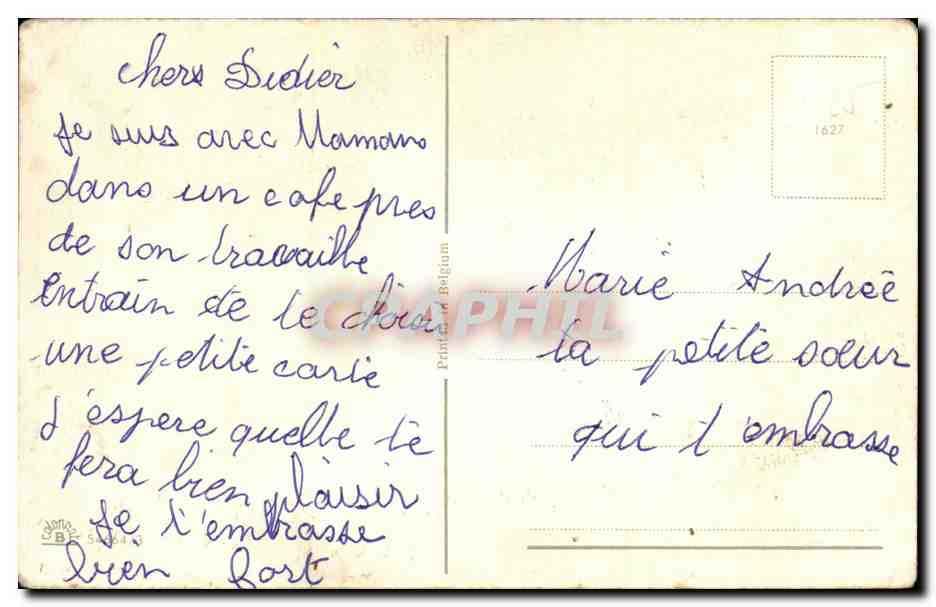 chers Didier
Je suis avec Mamans
dans un cafe pres
de son travaille
entrain de te choisi
une petite carte
j'espere quelle te
fera bien plaisir
Je t'embrasse
bien fort
Printed in Belgium
1627
Marie Andreé
ta petite sœur
qui t'embrasse
CPAPHIL
B